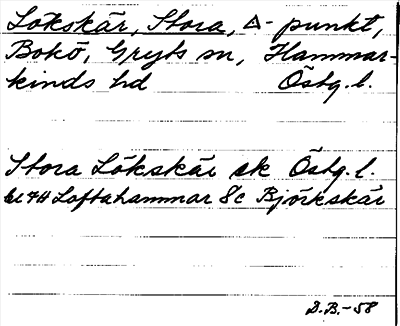 Lökskär, Stora, △-punkt,
Bokö, Gryts sn, Hammar-
kinds hd Östg. l.
Stora Lökskär ek Östg. l.
bl 74 Loftahammar 8c Björkskär
D.B.-58